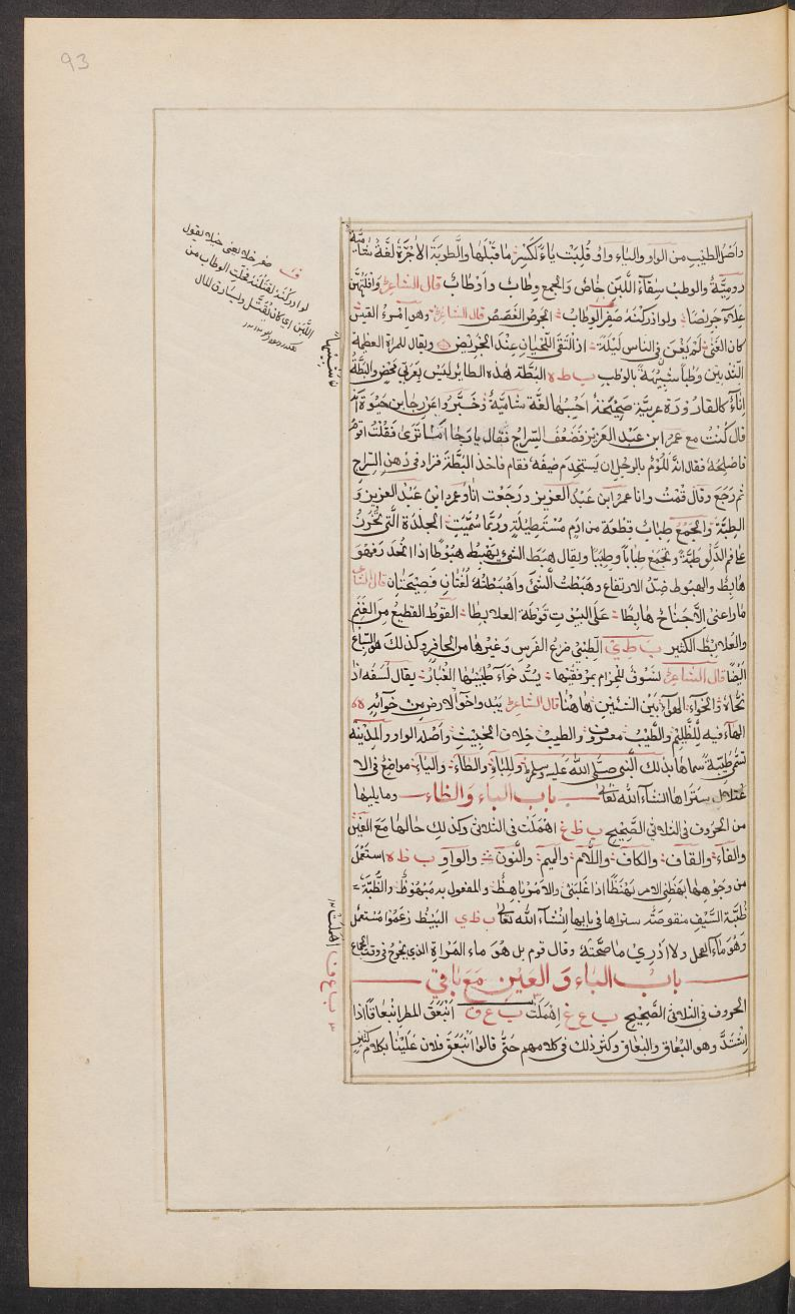 93
وأصل الطيب من الواو والياء واو قلبت ياء لكسرة ما قبلها والطوبة الآجرة لغة شامية
رومية والوطب سقاء اللبن خاص والجمع وطاب وأوطاب قال الشاعر وأفلتهن
علباء جريضا ولو ادركنه صفر الوطاب الجرض الغصص قال الشاعر وهو امرؤ القيس
كان الفتى لم يغن في الناس ليلة إذا التقى اللحيان عند الجريض ويقال للمرأة العظيمة
الثديين وطبا شبيهة بالوطب ب ط ه البطة هذه الطائر ليس بعربي محض والبطة
إناء كالقارورة عربية صحيحة احسبها لغة شامية وخبر رواه عن رجا بن حيوة انه
قال كنت مع عمر ابن عبد العزيز فضعف السراج فقال يا رجا اما ترى فقلت اقوم
فاصلحه فقال انه للؤم بالرجل ان يستخدم ضيفه فقام فاخذ البطة فزاد في دهن السراج
ثم رجع وقال قمت وانا عمر ابن عبد العزيز ورجعت وانا وعمر ابن عبد العزيز و
الطبة والجمع طباب قطعة من ادم مستطيلة وربما سميت الجلدة التي تخرز
على فم الدلو طبة وتجمع طبابا وطببا ويقال هبط الشيء يهبط هبوطا اذا انحدر فهو
هابط والهبوط ضد الارتفاع وهبطت الشيء واهبطته لغتان فصيحتان قال الشاعر
ما راعني الا جناح هابطا على البيوت قوطه العلابطا القوط القطيع من الغنم
والعلابط الكثير ب ط ي الطبي ضرع الفرس وغيرها من الحافر وكذلك هو للسباع
ايضا قال الشاعر نسوف للحزام بمرفقيها يسد خواء طبييها الغبار يقال نسفه اذا
نحاه والخواء الهواء بين الشيئين هاهنا قال الشاعر يبدو خواء الارض من خوائه
الهاء فيه للظليم والطيب معروف والطيب خلاف الخبيث واصله الواو والمدينة
تسمى طيبة سماها بذلك النبي صلى الله عليه وسلم وللباء والطاء والياء مواضع في الا
عتلال ستراها انشاء الله تعالى باب الباء والظاء وما يليها
من الحروف في الثلاثي الصحيح ب ظ ع اهملت في الثلاثي وكذلك حالهما مع الغين
والفاء والقاف والكاف واللام والميم والنون والواو ب ظ ه استعمل
من وجوهها بهظني الامر بهظا اذا غلبني والامر باهظ والمفعول به مبهوظ والظبة
ظبة السيف منقوصة ستراها في بابها انشاء الله تعالى ب ظ ي البيظ زعموا مستعمل
وهو ماء الفحل ولا ادري ما صحته وقال قوم بل هو ماء المرأة الذي يخرج في وقت الجماع
باب الباء و العين مع باقي
الحروف في الثلاثي الصحيح ب ع غ اهملت ب ع ق انبعق المطر انبعاقا اذا
اشتد وهو البعاق والبعاق وكثر ذلك في كلامهم حتى قالوا انبعق فلان علينا بكلام كثير
ف صفر خلا يعني خيله يقول
لو ادركنه لقتلنه فخلت الوطاب من
اللبن اي كان يقتل ويساق المال
تشبيها
اهملت
ب ع ف